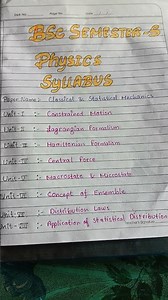 BSC SEMESTER-5
Physics
SYLLABUS
Paper Name: Classical & Statistical Mechanics
Unit-I :- Constrained Motion
Unit-II :- Lagrangian Formalism
Unit-III :- Hamiltonian Formalism
Unit-IV :- Central Force
Unit-V :- Macrostate & Microstate
Unit-VI :- Concept of Ensemble
Unit-VII :- Distribution Laws
Unit-VIII :- Application of Statistical Distribution